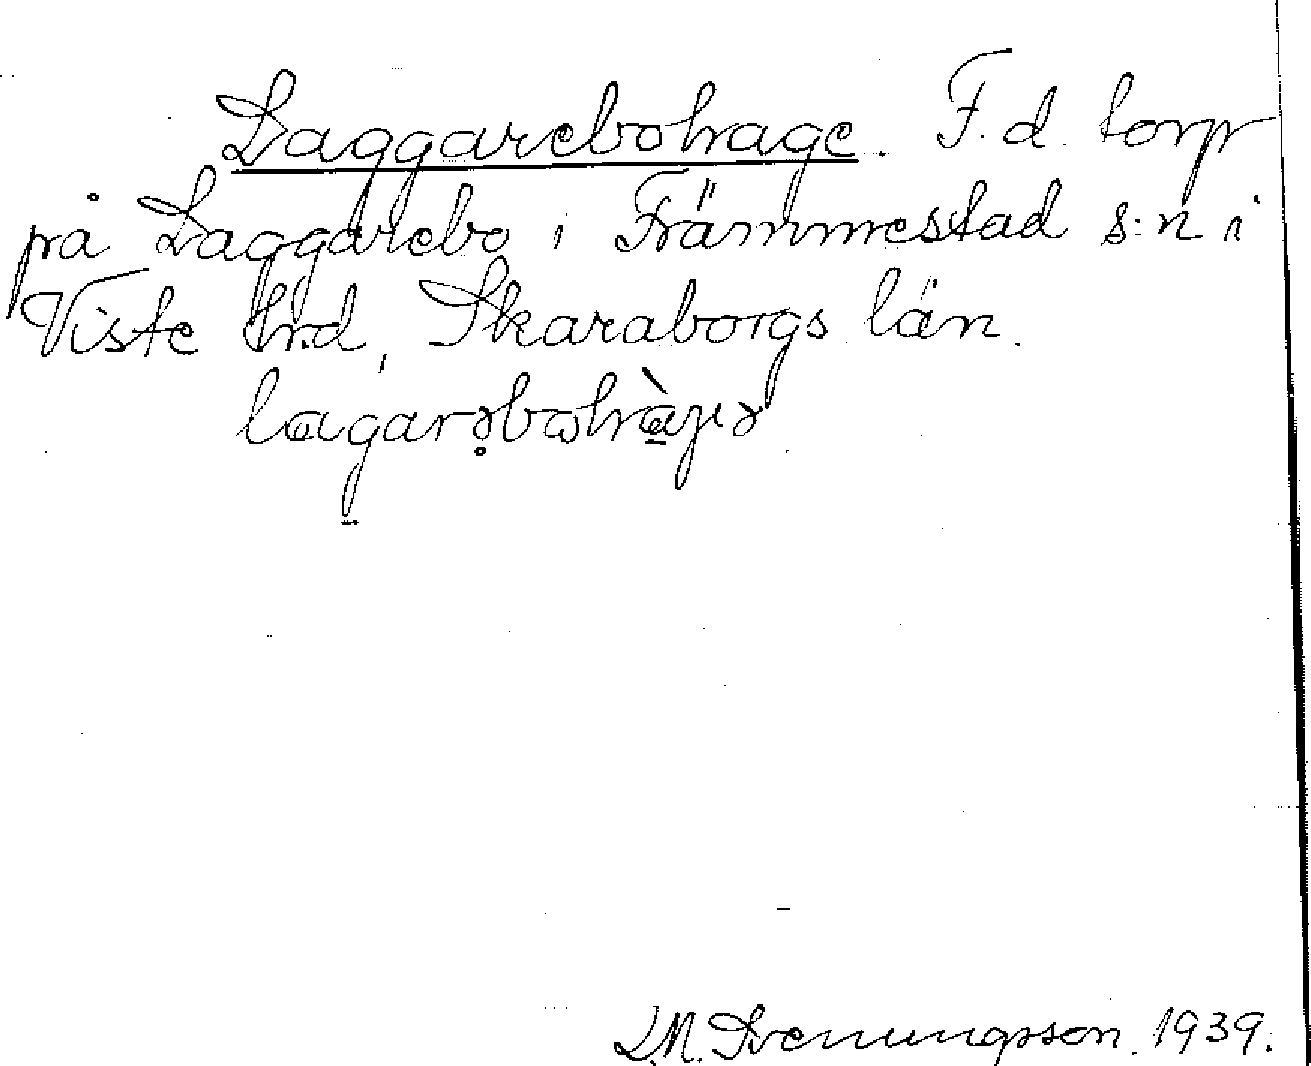 Laggarebohage. F.d. torp
på Laggarebo i Främmestad s:n i
Viste hrd, Skaraborgs län.
L.M. Svenungsson. 1939.